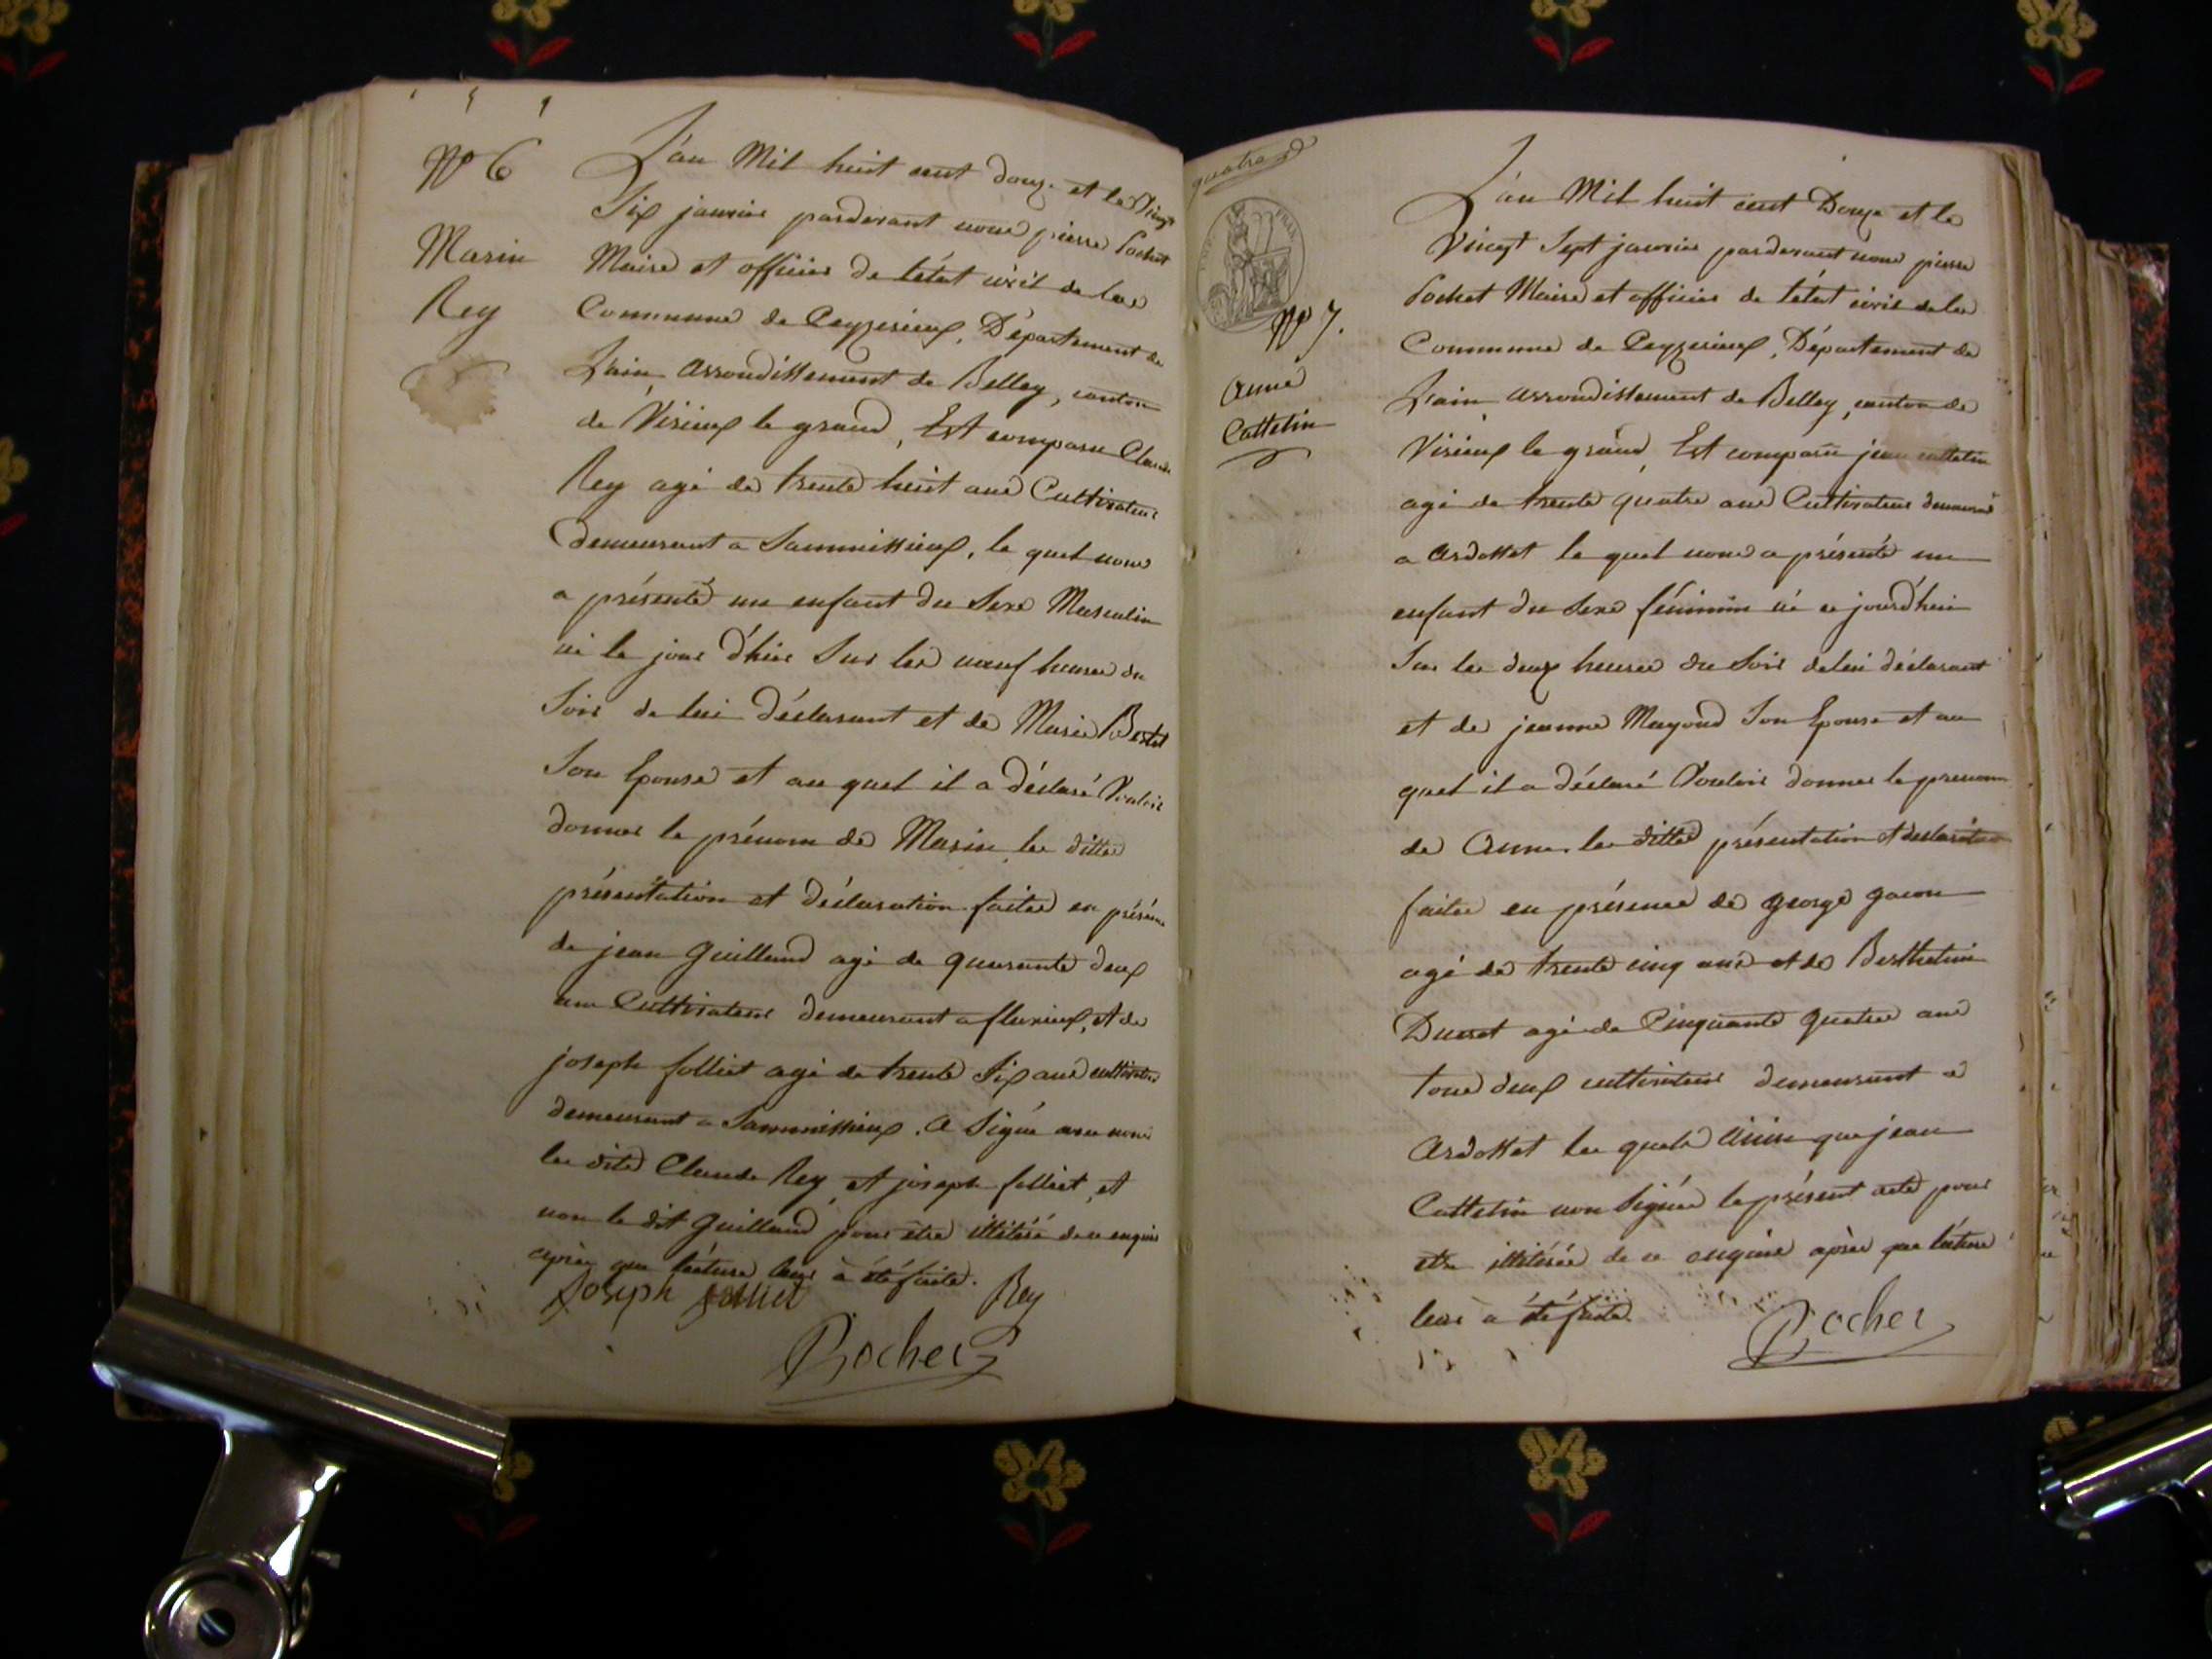 N° 6
Marin
Rey
L'an Mil huit cent douze et le Vingt
Six janvier pardevant nous pierre Pochet
Maire et officier de l'état civil de la
Commune de Ceyzerieux, Département de
L'ain, arrondissement de Belley, canton
de Virieux le grand, Est comparu Claude
Rey agé de trente huit ans Cultivateur
demeurant a Sammissieux, le quel nous
a présenté un enfant du Sexe Masculin
né le jour d'hier Sur les neuf heures du
Soir de lui déclarant et de Marie Bertet
Son Epouse et au quel il a déclaré Vouloir
donner le prénom de Marin, les dittes
présentation et déclaration faites en présence
de jean guilland agé de quarante deux
ans Cultivateur demeurant a flurieux, et de
joseph folliet agé de trente Six ans cultivateur
demeurant a Sammissieux. a Signé avec nous
les dits Claude Rey, et joseph folliet, et
non le dit guilland pour être illitéré de ce enquis
après que lecture leur à été faite.
Joseph folliet Rey
Pochet
quatre
N° 7.
Anne
Cattelin
L'an Mil huit cent Douze et le
Vingt Sept janvier pardevant nous pierre
Pochet Maire et officier de l'état civil de la
Commune de Ceyzerieux, Département de
L'ain, arrondissement de Belley, canton de
Virieux le grand, Est comparu jean cattelin
agé de trente quatre ans Cultivateur demeurant
a Ardosset le quel nous a présenté un
enfant du Sexe féminin né ce jourd'hui
Sur les deux heures du Soir de lui déclarant
et de jeanne Mayoud Son Epouse et au
quel il a déclaré Vouloir donner le prenom
de Anne. les dittes présentation et déclaration
faites en présence de george gacon
agé de trente cinq ans et de Berthelmi
Ducret agé de Cinquante quatre ans
tous deux cultivateurs demeurant a
Ardosset les quels Ainsi que jean
Cattelin non Signés le présent acte pour
être illitérés de ce enquis après que lecture
leur à été faite.
Pochet